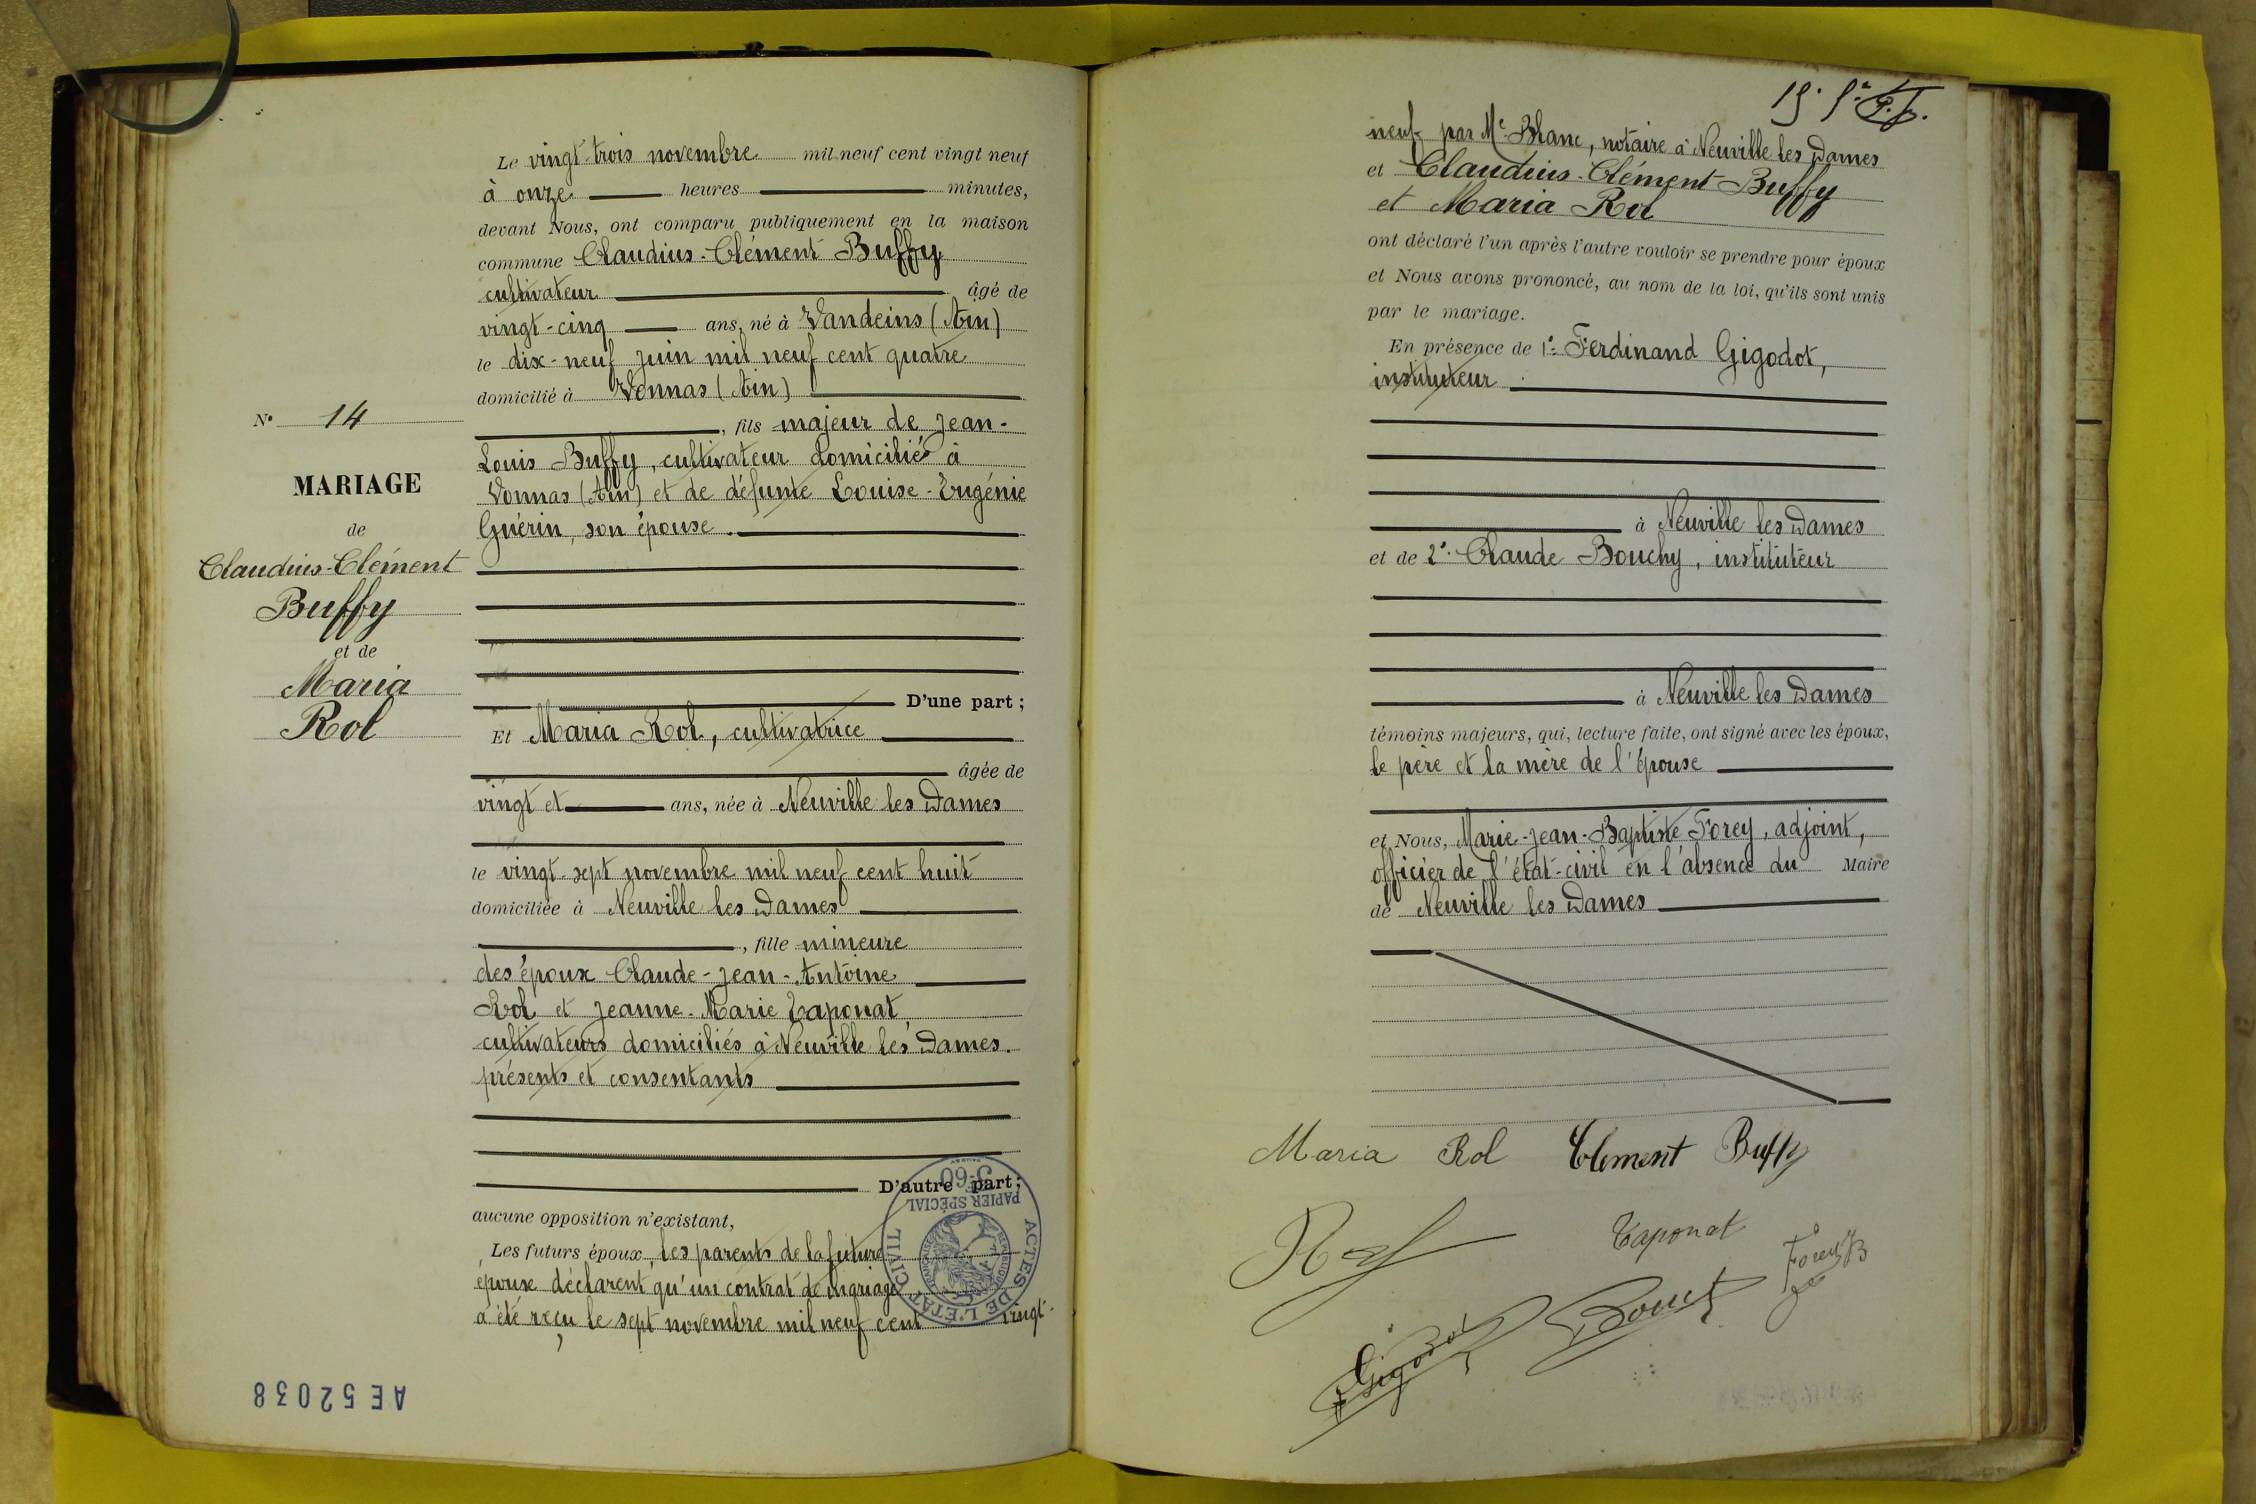 Le vingt-trois novembre mil neuf cent vingt neuf
à onze heures minutes,
devant Nous, ont comparu publiquement en la maison
commune Claudius-Clément Buffy
cultivateur âgé de
vingt-cinq ans, né à Vandeins (Ain)
le dix-neuf juin mil neuf cent quatre
domicilié à Vonnas (Ain)
, fils majeur de Jean-
Louis Buffy, cultivateur domicilié à
Vonnas (Ain) et de défunte Louise-Eugénie
Guérin, son épouse.
D'une part ;
Et Maria Rol, cultivatrice
âgée de
vingt et ans, née à Neuville les Dames
le vingt-sept novembre mil neuf cent huit
domiciliée à Neuville les Dames
, fille mineure
des époux Claude-Jean-Antoine
Rol et Jeanne-Marie Taponat
cultivateurs domiciliés à Neuville les Dames.
présents et consentants
D'autre part ;
aucune opposition n'existant,
Les futurs époux, les parents de la future
épouse déclarent qu'un contrat de mariage
a été reçu le sept novembre mil neuf cent vingt-
N° 14
MARIAGE
de
Claudius-Clément
Buffy
et de
Maria
Rol
ACTES DE L'ÉTAT CIVIL
PAPIER SPÉCIAL
3f60
AE 52038
neuf par Me Blanc, notaire à Neuville les Dames
et Claudius-Clément Buffy
et Maria Rol
ont déclaré l'un après l'autre vouloir se prendre pour époux
et Nous avons prononcé, au nom de la loi, qu'ils sont unis
par le mariage.
En présence de 1° Ferdinand Gigodot,
instituteur
à Neuville les Dames
et de 2° Claude Bouchy, instituteur
à Neuville les Dames
témoins majeurs, qui, lecture faite, ont signé avec les époux,
le père et la mère de l'épouse
et Nous, Marie-Jean-Baptiste Forey, adjoint,
officier de l'état-civil en l'absence du Maire
de Neuville les Dames
Maria Rol Clement Buffy
Rol Taponat
Forey JB
Gigodot